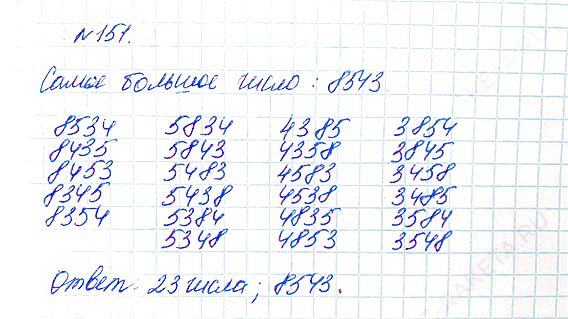 №151.
Самое большое число: 8543
8534 5834 4385 3854
8435 5843 4358 3845
8453 5483 4583 3458
8345 5438 4538 3485
8354 5384 4835 3584
5348 4853 3548
Ответ: 23 числа; 8543.